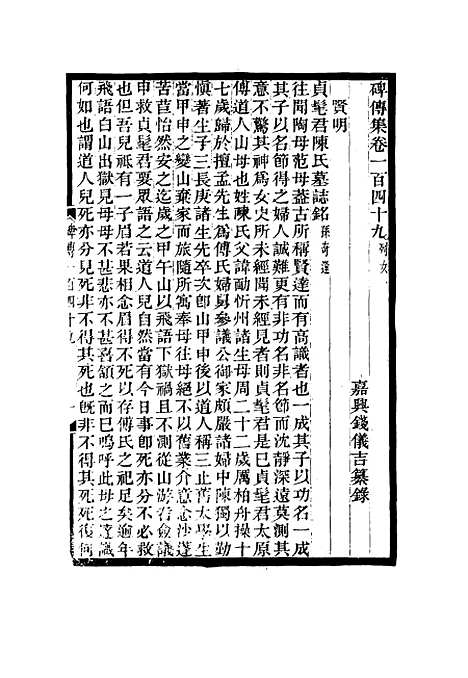 碑傳集卷一百四十九 列女一
嘉興錢儀吉纂錄
賢明
貞髦君陳氏墓誌銘 孫奇逢
往聞陶母范母蓋古所稱賢達而有高識者也一成其子以功名一成
其子以名節得之婦人誠難更有非功名非名節而沈靜深遠莫測其
意不驚其神爲女史所未經聞未經見者則貞髦君是已貞髦君太原
傅道人山母也姓陳氏父諱勔忻州諸生母周二十二歲厲柏舟操十
七歲歸於擅孟先生爲傅氏婦舅參議公御家頗嚴諸婦中陳獨以勤
愼著生子三長庚諸生先卒次卽山甲申後以道人稱三止舊太學生
當甲申之變山棄家而旅隨所寓奉母往母絕不以舊業介意念沙蓬
苦苣怡然安之迄歲之甲午山以飛語下獄禍且不測從山游者僉議
申救貞髦君要眾語之云道人兒自然當有今日事卽死亦分不必救
也但吾兒祗有一子眉若果相念眉得不死以存傅氏之祀足矣逾年
飛語白山出獄見母母不甚悲亦不甚喜頷之而已嗚呼此母之達識
何如也謂道人兒死亦分兒死非不得其死也旣非不得其死死復何
碑傳一百四十九 一